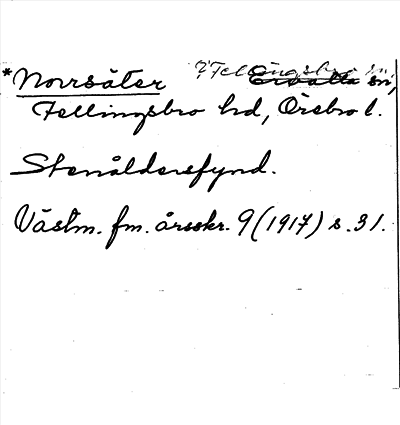 *Norrsäter ?Fellingsbro sn. Ervalla sn,
Fellingsbro hd, Örebro l.
Stenåldersfynd.
Västm. fm. årsskr. 9 (1917) s. 31.